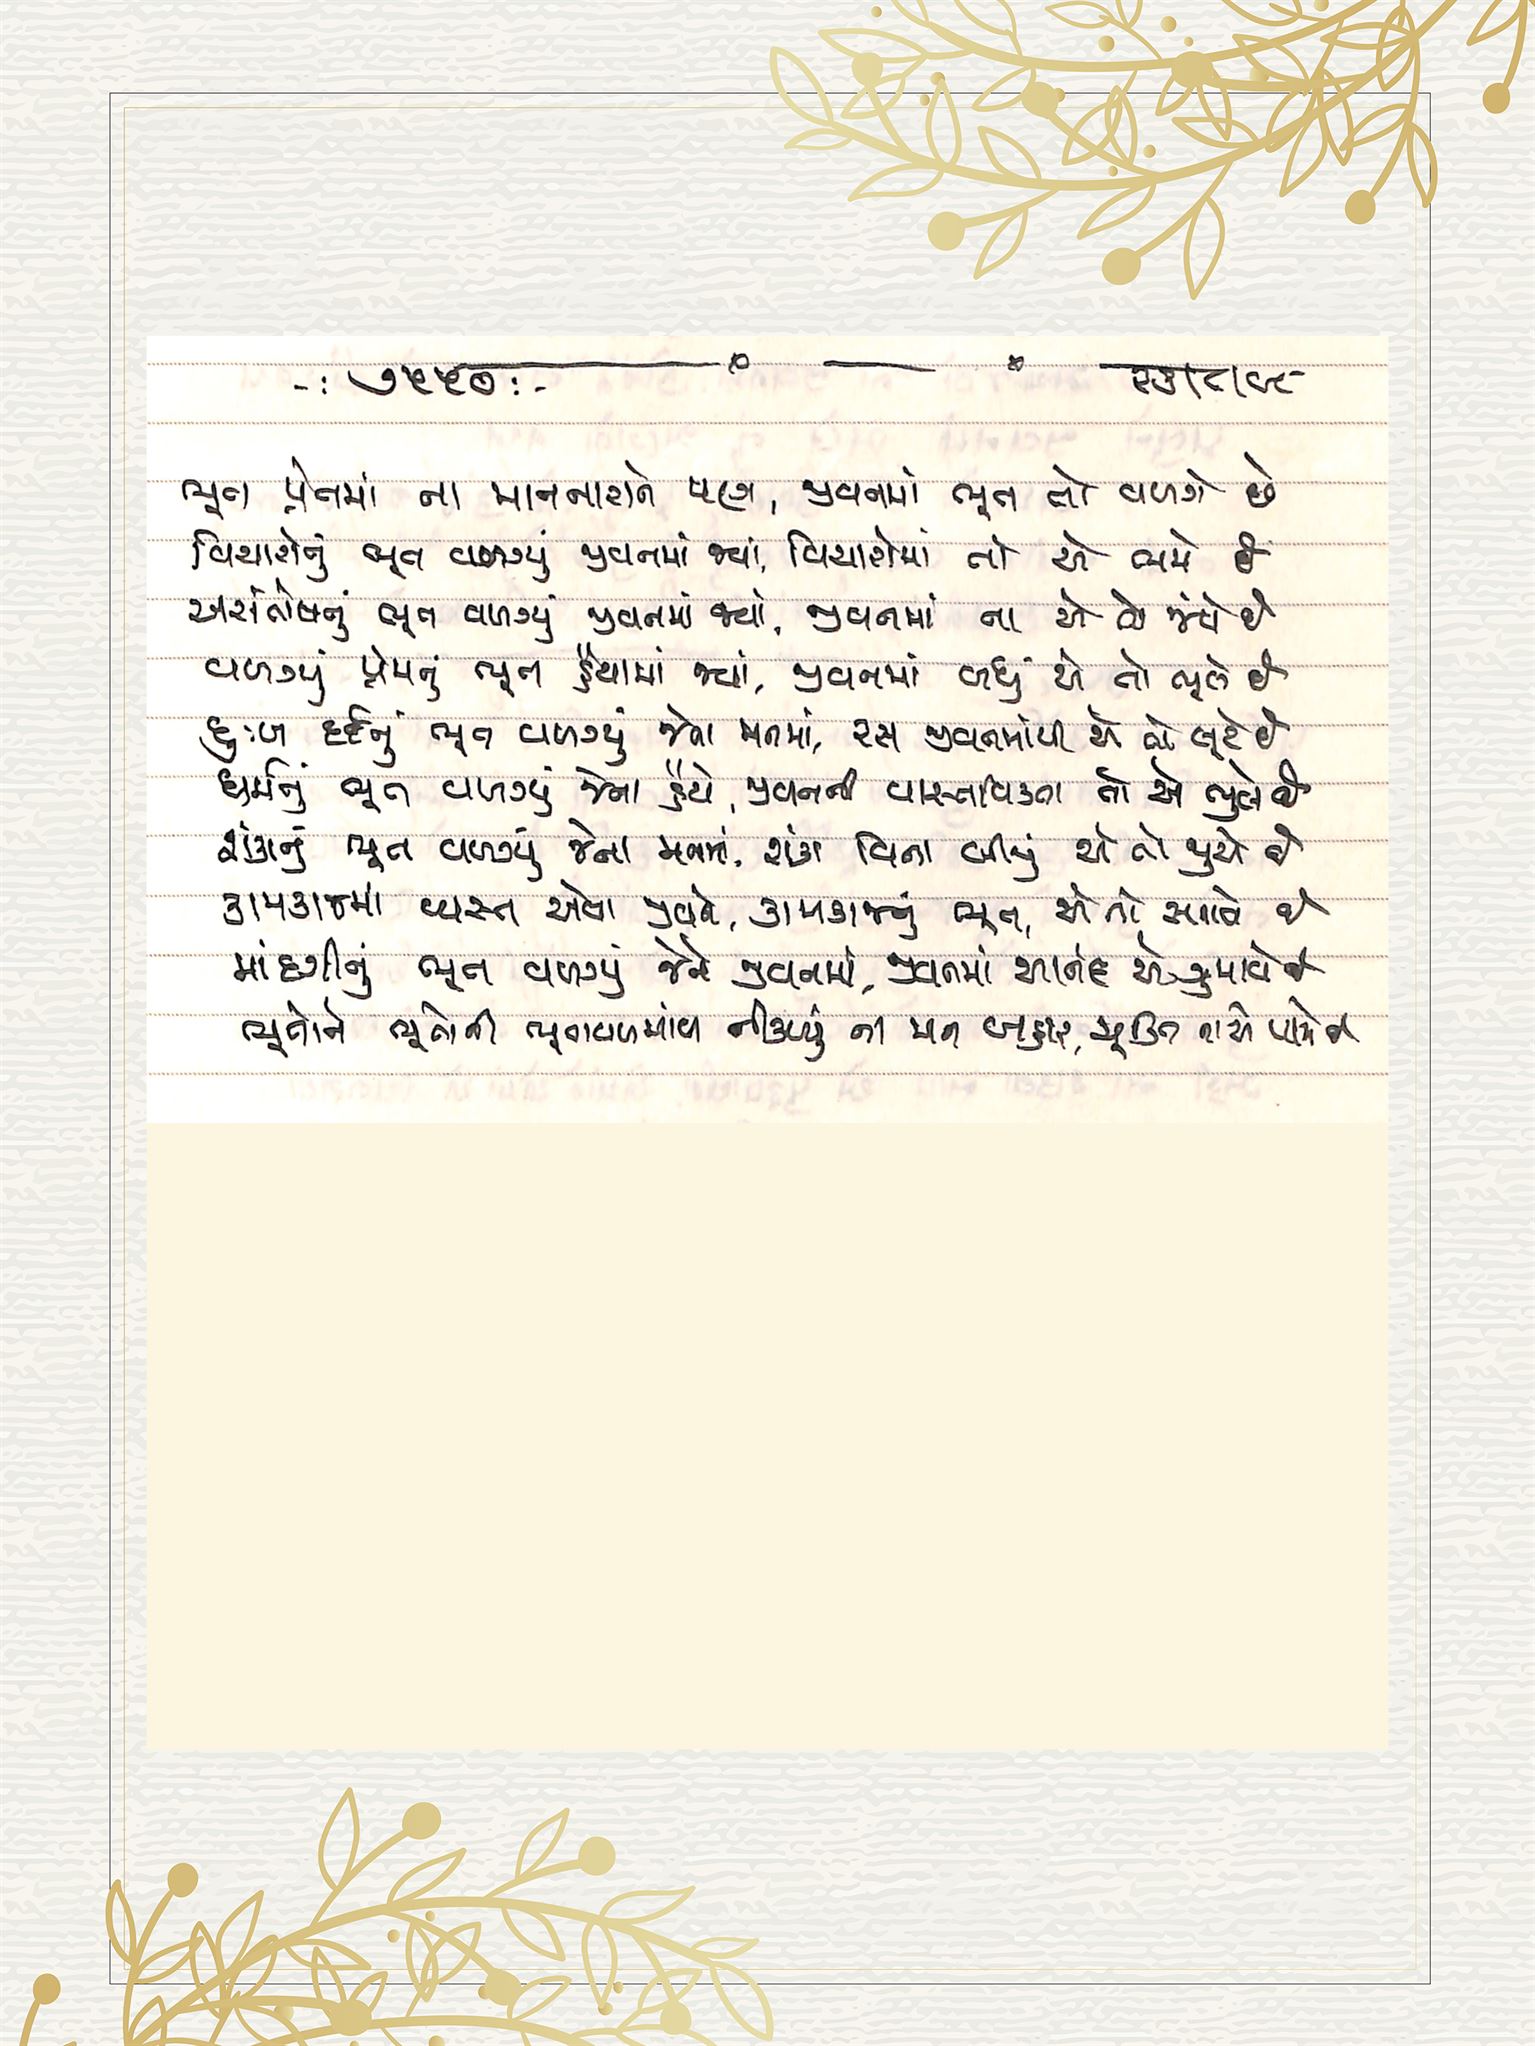 -: ૭૫૫૦ :- ૨૩/૮/૯૮
ભૂત પ્રેતમાં ના માનનારાને પણ, જીવનમાં ભૂત તો વળગે છે
વિચારોનું ભૂત વળગ્યું જીવનમાં જ્યાં, વિચારોમાં તો એ ભમે છે
અસંતોષનું ભૂત વળગ્યું જીવનમાં જ્યાં, જીવનમાં ના એ તો જંપે છે
વળગ્યું પ્રેમનું ભૂત હૈયામાં જ્યાં, જીવનમાં બધું એ તો ભૂલે છે
દુઃખ દર્દનું ભૂત વળગ્યું જેના મનમાં, રસ જીવનમાંથી એ તો લૂંટે છે
ધર્મનું ભૂત વળગ્યું જેના હૈયે, જીવનની વાસ્તવિકતા તો એ ભુલે છે
શંકાનું ભૂત વળગ્યું જેના મનમાં, શંકા વિના બીજું એ તો જુએ છે
કામકાજમાં વ્યસ્ત એવા જીવને, કામકાજનું ભૂત, એ તો સતાવે છે
માંદગીનું ભૂત વળગ્યું જેને જીવનમાં, જીવનમાં આનંદ એ ગુમાવે છે
ભૂતોને ભૂતોની ભૂતાવળમાંથી નીકળ્યું ના મન બહાર, મૂક્તિ ના એ પામે છે